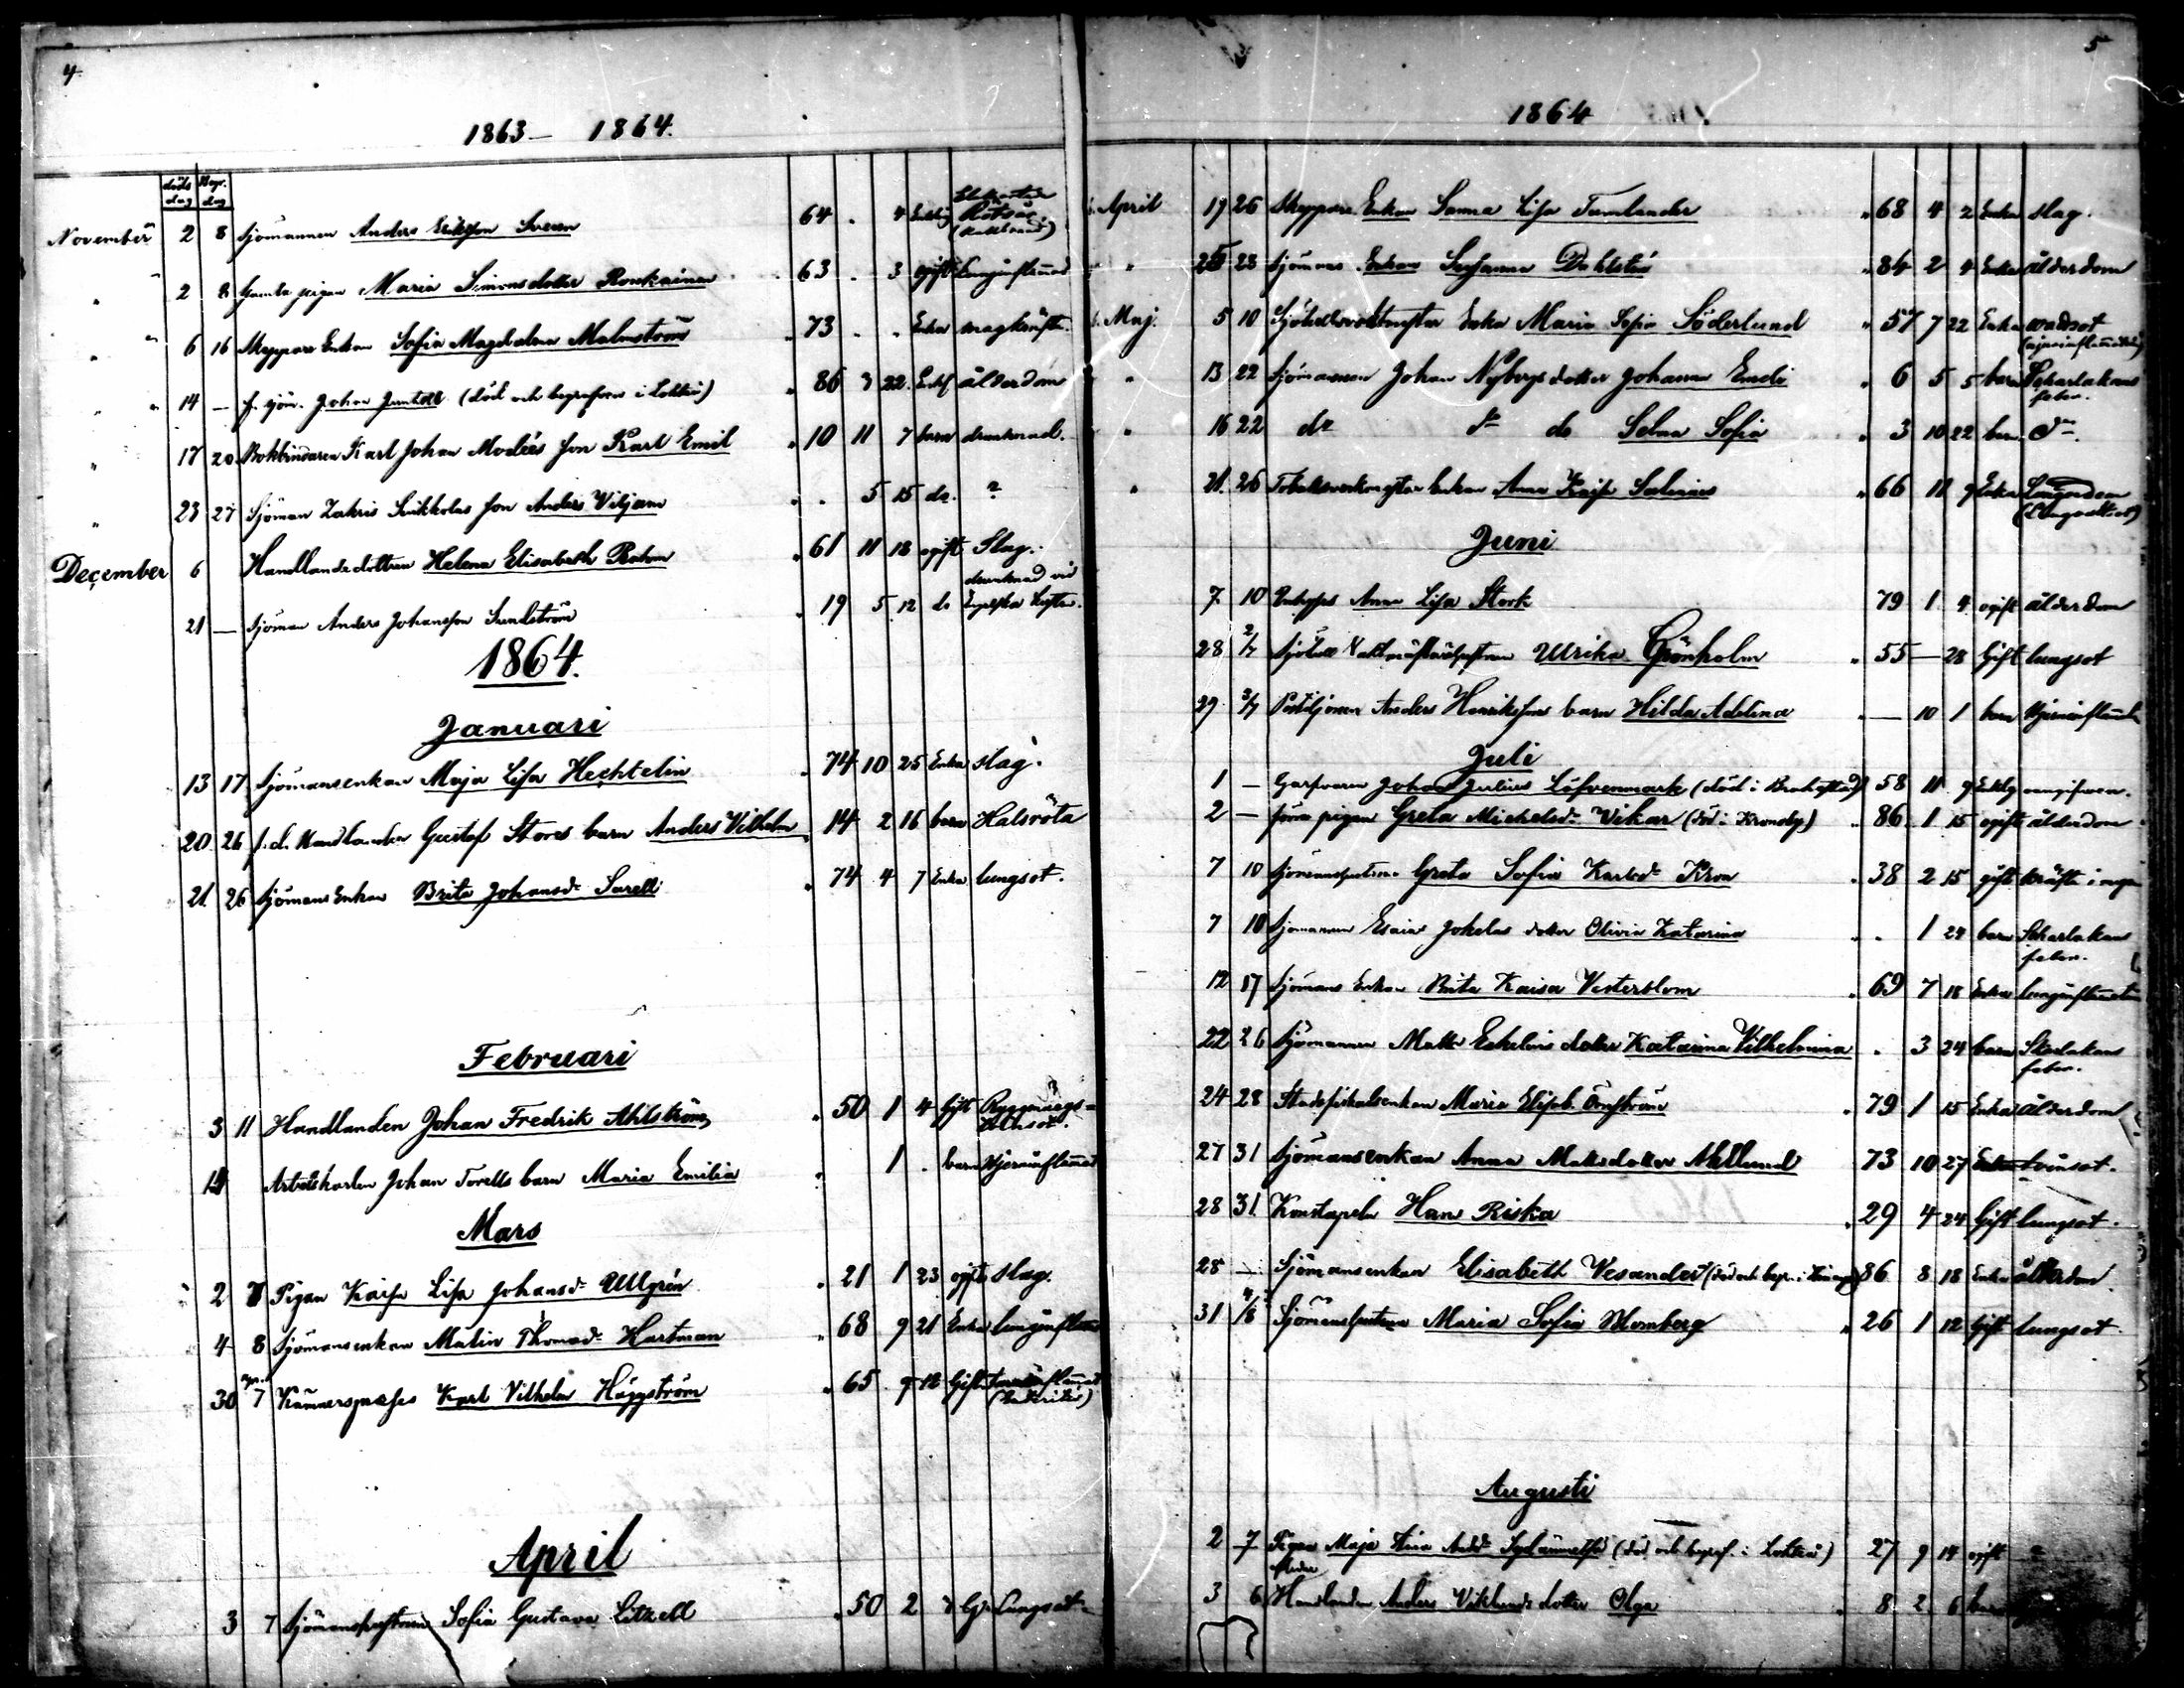 4
1863 — 1864.
döds dag Begr. dag
November 2 8 Sjömannen Anders Eriksson 64 . 4 Enkling
" 2 8 Gamla pigan Maria Simonsdotter Ronkainen 63 . 3 ogift Lunginflamat
" " 6 16 Skeppare Enkan Sofia Magdalena Malmström 73 . . Enka magkräfta.
" " 14 — f. sjöm. Johan (död och begrafven i Lohteå) 86 3 22 Enkl ålderdom
" 17 20 Bokbindaren Karl Johan Modées son Karl Emil 10 11 7 barn drunknad.
" 23 27 Sjöman Zakris son Anders Viljam . 5 15 do. ?
December 6 Handlandedottren Helena Elisabeth 61 11 18 ogift Slag.
21 — Sjöman Anders Johansson Sundström 19 5 12 do drunknad vid Engelska kusten.
1864.
Januari
13 17 Sjömansenkan Maja Lisa Hechtelin 74 10 25 Enka slag.
20 26 f.d. Handlanden Gustaf Stores barn Anders Vilhelm 14 2 16 barn Halsröta
21 26 Sjömans Enkan Brita Johansd. 74 4 7 Enka lungsot.
Februari
3 11 Handlanden Johan Fredrik Ahlström 50 1 4 Gift Ryggmärgs-
14 Arbetskarlen Johan Torells barn Maria Emilia 1 . barn Hjerninflamat
Mars
2 8 Pigan Kaisa Lisa Johansd. Ullgrén 21 1 23 ogift slag.
4 8 Sjömansenkan Malin Thomasd. Hartman 68 9 21 Enka lunginflam
30 Apr. 7 Kämnerspreses Karl Vilhelm Häggström 65 9 12 Gift (Enteritis)
April
3 7 Sjömanshustrun Sofia Gustava Litzell 50 2 3 G. Lungsot
5
1864
April 19 26 Skeppare Enkan Sanna Lisa 68 4 2 Enka slag.
" 25 28 Sjömans Enkan Susanna Dahlstén 84 2 4 Enka ålderdom
Maj. 5 10 Enka Maria Sofia Söderlund 57 7 22 Enka vattsot
" 13 22 Sjömannen Johan Nybergs dotter Johanna 6 5 5 barn Scharlakans feber.
" 16 22 do do do Selma Sofia 3 10 22 barn do.
" 21 26 enkan Anna Kajsa 66 11 9 Enka
Juni
7 10 Anna Lisa Stork 79 1 4 ogift ålderdom
28 2/7 Ulrika Grönholm 55 — 28 Gift lungsot
29 3/7 Postiljonen Anders Henrikssons barn Hilda Adelina — 10 1 barn Hjerninflamat
Juli
1 — Garfvaren Johan Julius Löfvenmark (död i Brahestad) 58 11 9 Enklg
2 — förra pigan Greta Michelsd. Vikar (död i Kronoby) 86 1 15 ogift ålderdom
7 10 Sjömanshustrun Greta Sofia Karlsd. Kron 38 2 15 gift kräfta i
7 10 Sjömannen Esaias Jokelas dotter Olivia Katarina . 1 24 barn Scharlakans feber.
12 17 Sjömans Enkan Brita Kaisa Vesterblom 69 7 18 Enka lunginflamation
22 26 Sjömannen Matts dotter Katarina Vilhelmina . 3 24 barn Skarlakans feber.
24 28 Stadsfiskalsenkan Maria Elisab. Örnström 79 1 15 Enka ålderdom
27 31 Sjömansenkan Anna Mattsdotter 73 10 27 Enka tvinsot.
28 31 Konstapeln Hans Riska 29 4 24 Gift lungsot.
28 — Sjömansenkan Elisabeth Vesander (död och begr. i 86 8 18 Enka ålderdom
31 4/8 Sjömanshustrun Maria Sofia Blomberg 26 1 12 Gift lungsot.
Augusti
2 7 Pigan Maja Stina Andd. (död och begraf. i Lohteå) 27 9 14 ogift
3 6 Handlanden Anders Viklunds dotter Olga 8 2 6 barn